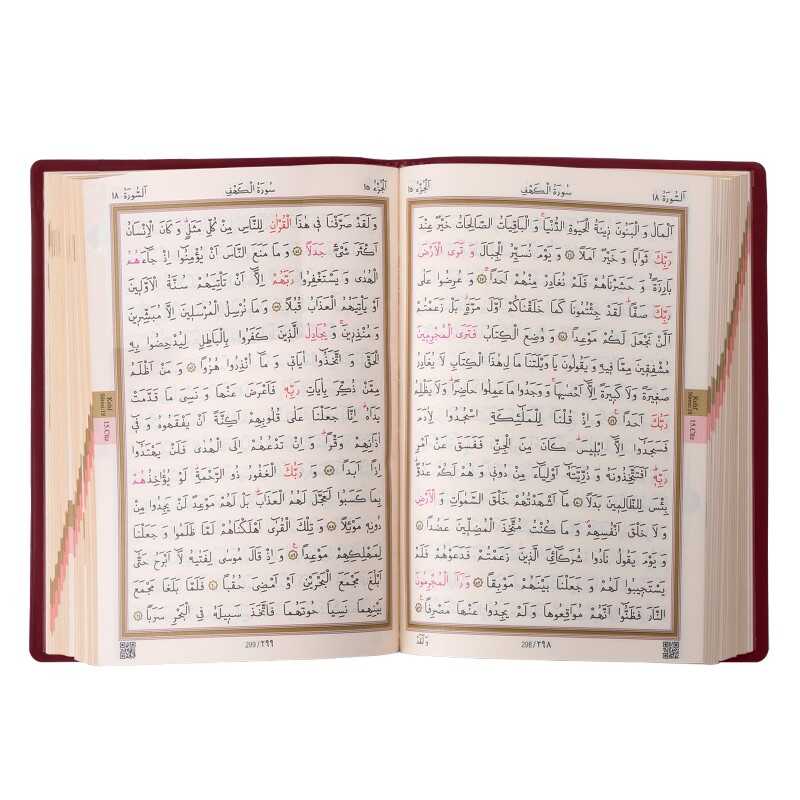 اَلسُّورَةُ ١٨
سُورَةُ الْكَهْفِ
اَلْجُزْءُ ١٥
اَلْمَالُ وَ الْبَنُونَ ز۪ينَةُ الْحَيٰوةِ الدُّنْيَاۚ وَ الْبَاقِيَاتُ الصَّالِحَاتُ خَيْرٌ عِنْدَ
رَبِّكَ ثَوَابًا وَ خَيْرٌ اَمَلًا ﴿٤٦﴾ وَ يَوْمَ نُسَيِّرُ الْجِبَالَ وَ تَرَى الْاَرْضَ
بَارِزَةًۙ وَ حَشَرْنَاهُمْ فَلَمْ نُغَادِرْ مِنْهُمْ اَحَدًاۚ ﴿٤٧﴾ وَ عُرِضُوا عَلٰى
رَبِّكَ صَفًّاۜ لَقَدْ جِئْتُمُونَا كَمَا خَلَقْنَاكُمْ اَوَّلَ مَرَّةٍۘ بَلْ زَعَمْتُمْ
اَلَّنْ نَجْعَلَ لَكُمْ مَوْعِدًا ﴿٤٨﴾ وَ وُضِعَ الْكِتَابُ فَتَرَى الْمُجْرِم۪ينَ
مُشْفِق۪ينَ مِمَّا ف۪يهِ وَ يَقُولُونَ يَا وَيْلَتَنَا مَا لِهٰذَا الْكِتَابِ لَا يُغَادِرُ
صَغ۪يرَةً وَ لَا كَب۪يرَةً اِلَّٓا اَحْصٰيهَاۚ وَ وَجَدُوا مَا عَمِلُوا حَاضِرًاۜ وَ لَا يَظْلِمُ
رَبُّكَ اَحَدًا۟ ﴿٤٩﴾ وَ اِذْ قُلْنَا لِلْمَلٰٓئِكَةِ اسْجُدُوا لِاٰدَمَ
فَسَجَدُٓوا اِلَّٓا اِبْل۪يسَۜ كَانَ مِنَ الْجِنِّ فَفَسَقَ عَنْ اَمْرِ
رَبِّه۪ۜ اَفَتَتَّخِذُونَهُ وَ ذُرِّيَّتَهُٓ اَوْلِيَٓاءَ مِنْ دُون۪ي وَ هُمْ لَكُمْ عَدُوٌّۜ
بِئْسَ لِلظَّالِم۪ينَ بَدَلًا ﴿٥٠﴾ مَٓا اَشْهَدْتُهُمْ خَلْقَ السَّمٰوَاتِ وَ الْاَرْضِ
وَ لَا خَلْقَ اَنْفُسِهِمْۖ وَ مَا كُنْتُ مُتَّخِذَ الْمُضِلّ۪ينَ عَضُدًا ﴿٥١﴾
وَ يَوْمَ يَقُولُ نَادُوا شُرَكَٓاءِيَ الَّذ۪ينَ زَعَمْتُمْ فَدَعَوْهُمْ فَلَمْ
يَسْتَج۪يبُوا لَهُمْ وَ جَعَلْنَا بَيْنَهُمْ مَوْبِقًا ﴿٥٢﴾ وَ رَاَ الْمُجْرِمُونَ
النَّارَ فَظَنُّٓوا اَنَّهُمْ مُوَاقِعُوهَا وَ لَمْ يَجِدُوا عَنْهَا مَصْرِفًا۟ ﴿٥٣﴾
298 / ٢٩٨
وَ لَقَدْ
Kehf
Sûresi:18
15.Cüz
اَلْجُزْءُ ١٥
سُورَةُ الْكَهْفِ
اَلسُّورَةُ ١٨
وَ لَقَدْ صَرَّفْنَا ف۪ي هٰذَا الْقُرْاٰنِ لِلنَّاسِ مِنْ كُلِّ مَثَلٍۜ وَ كَانَ الْاِنْسَانُ
اَكْثَرَ شَيْءٍ جَدَلًا ﴿٥٤﴾ وَ مَا مَنَعَ النَّاسَ اَنْ يُؤْمِنُٓوا اِذْ جَٓاءَهُمُ
الْهُدٰى وَ يَسْتَغْفِرُوا رَبَّهُمْ اِلَّٓا اَنْ تَأْتِيَهُمْ سُنَّةُ الْاَوَّل۪ينَ
اَوْ يَأْتِيَهُمُ الْعَذَابُ قُبُلًا ﴿٥٥﴾ وَ مَا نُرْسِلُ الْمُرْسَل۪ينَ اِلَّا مُبَشِّر۪ينَ
وَ مُنْذِر۪ينَۚ وَ يُجَادِلُ الَّذ۪ينَ كَفَرُوا بِالْبَاطِلِ لِيُدْحِضُوا بِهِ
الْحَقَّ وَ اتَّخَذُٓوا اٰيَات۪ي وَ مَٓا اُنْذِرُوا هُزُوًا ﴿٥٦﴾ وَ مَنْ اَظْلَمُ
مِمَّنْ ذُكِّرَ بِاٰيَاتِ رَبِّه۪ فَاَعْرَضَ عَنْهَا وَ نَسِيَ مَا قَدَّمَتْ
يَدَاهُۜ اِنَّا جَعَلْنَا عَلٰى قُلُوبِهِمْ اَكِنَّةً اَنْ يَفْقَهُوهُ وَ ف۪ٓي
اٰذَانِهِمْ وَقْرًاۜ وَ اِنْ تَدْعُهُمْ اِلَى الْهُدٰى فَلَنْ يَهْتَدُٓوا
اِذًا اَبَدًا ﴿٥٧﴾ وَ رَبُّكَ الْغَفُورُ ذُو الرَّحْمَةِۜ لَوْ يُؤَاخِذُهُمْ
بِمَا كَسَبُوا لَعَجَّلَ لَهُمُ الْعَذَابَۜ بَلْ لَهُمْ مَوْعِدٌ لَنْ يَجِدُوا مِنْ
دُونِه۪ مَوْئِلًا ﴿٥٨﴾ وَ تِلْكَ الْقُرٰٓى اَهْلَكْنَاهُمْ لَمَّا ظَلَمُوا وَ جَعَلْنَا
لِمَهْلِكِهِمْ مَوْعِدًا۟ ﴿٥٩﴾ وَ اِذْ قَالَ مُوسٰى لِفَتٰيهُ لَٓا اَبْرَحُ حَتّٰٓى
اَبْلُغَ مَجْمَعَ الْبَحْرَيْنِ اَوْ اَمْضِيَ حُقُبًا ﴿٦٠﴾ فَلَمَّا بَلَغَا مَجْمَعَ
بَيْنِهِمَا نَسِيَا حُوتَهُمَا فَاتَّخَذَ سَب۪يلَهُ فِي الْبَحْرِ سَرَبًا ﴿٦١﴾
299 / ٢٩٩
Kehf
Sûresi:18
15.Cüz